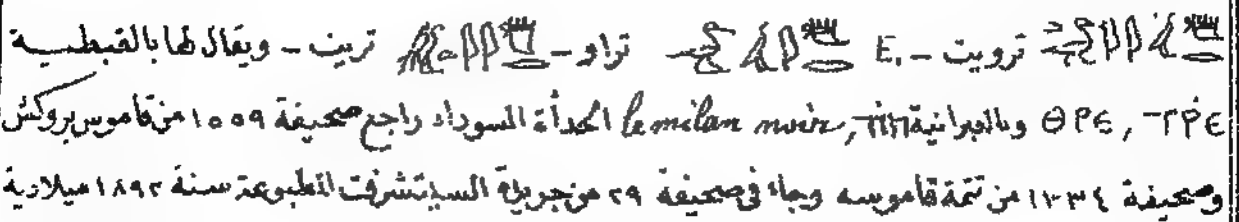 ترويت - .E تراو - تريت - ويقال لها بالقبطية
ⲑⲣⲉ , ⲧⲣⲉ وبالعبرانية le milan noir, الحدأة السوداء راجع صحيفة ١٥٥٩ من قاموس بروكش
وصحيفة ١٣٣٤ من تتمة قاموسه وجاء في صحيفة ٢٩ من جريدة السيتشرفت المطبوعة سنة ١٨٩٢ ميلادية